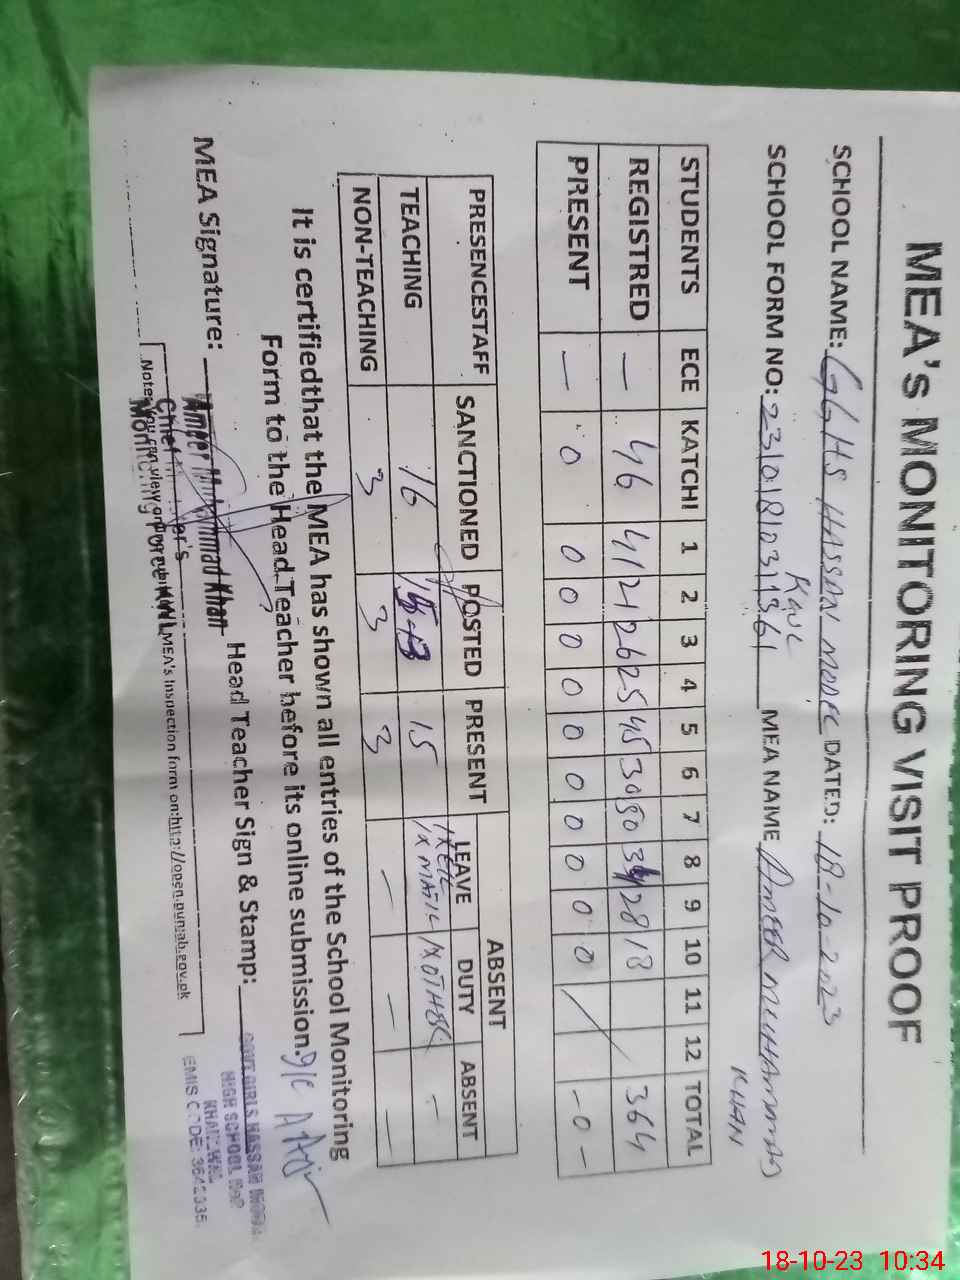 MEA's MONITORING VISIT PROOF
SCHOOL NAME: GGHS HASSAN MODEL DATED: 18-10-2023
KWL
SCHOOL FORM NO: 23101810311361 MEA NAME AMEER MUHAMMAD
KHAN
STUDENTS ECE KATCHI 1 2 3 4 5 6 7 8 9 10 11 12 TOTAL
REGISTRED — 46 41 21 26 25 45 30 50 34 28 18 364
PRESENT — 0 0 0 0 0 0 0 0 0 0 0 -0-
PRESENCESTAFF SANCTIONED POSTED PRESENT ABSENT
LEAVE DUTY ABSENT
TEACHING 16 15 -
NON-TEACHING 3 3 3 — — —
It is certifiedthat the MEA has shown all entries of the School Monitoring
Form to the Head Teacher before its online submission.
MEA Signature: Head Teacher Sign & Stamp:
Ameer Muhammad Khan
Monitoring Force KWL
GOVT GIRLS HASSAN MODEL
HIGH SCHOOL
KHANEWAL
EMIS CODE:
MEA's Inspection form on:http://open.punjab.gov.pk
18-10-23 10:34